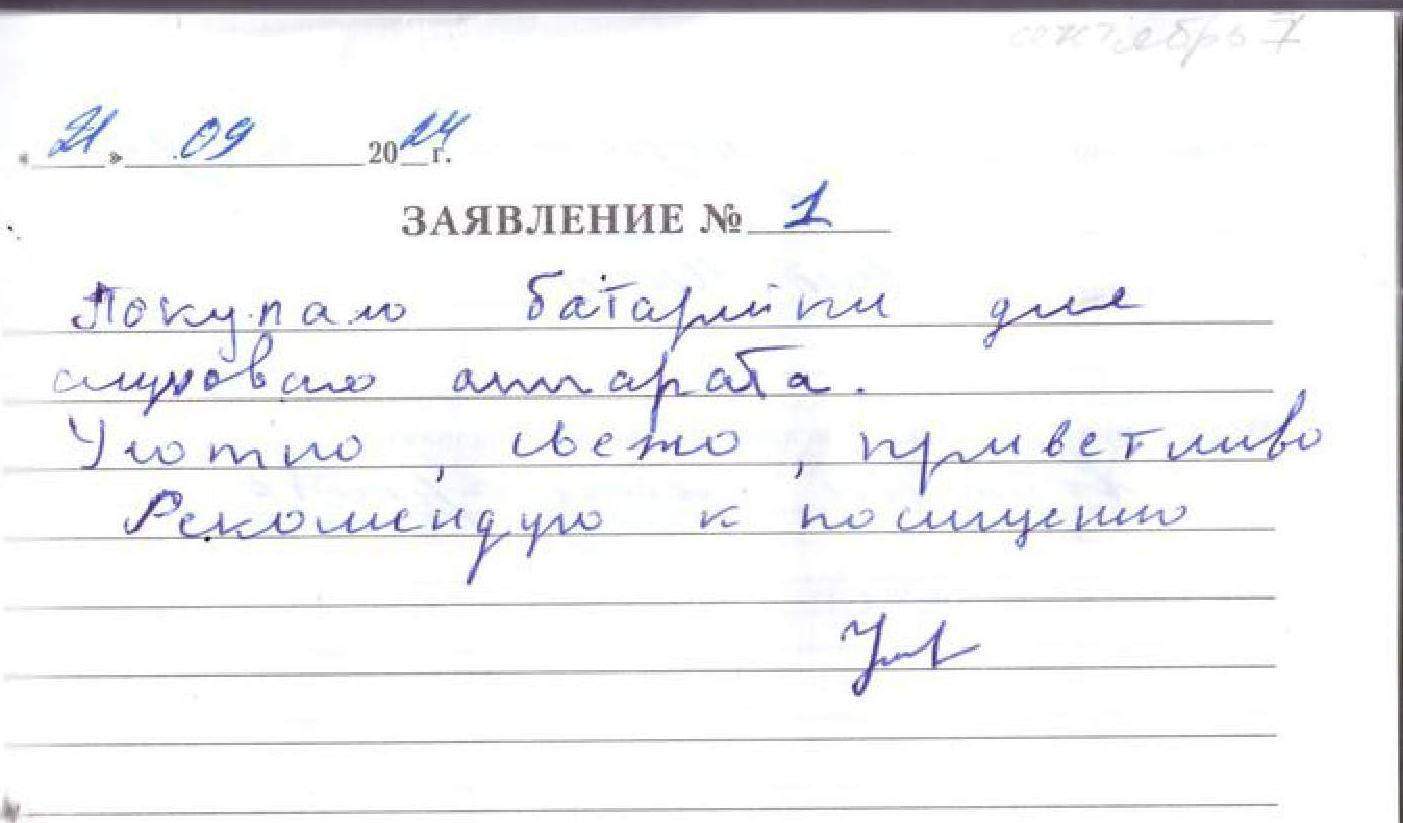 сентябрь 7
« 21 » 09 2024 г.
ЗАЯВЛЕНИЕ № 1
Покупаю батарейки для
слухового аппарата.
Уютно, свежо, приветливо
Рекомендую к посещению